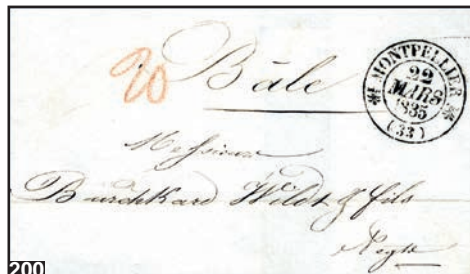 20
Bâle
MONTPELLIER
22
MARS
1835
(33)
Messieurs
Burckhard Wildt & fils
Negts
200